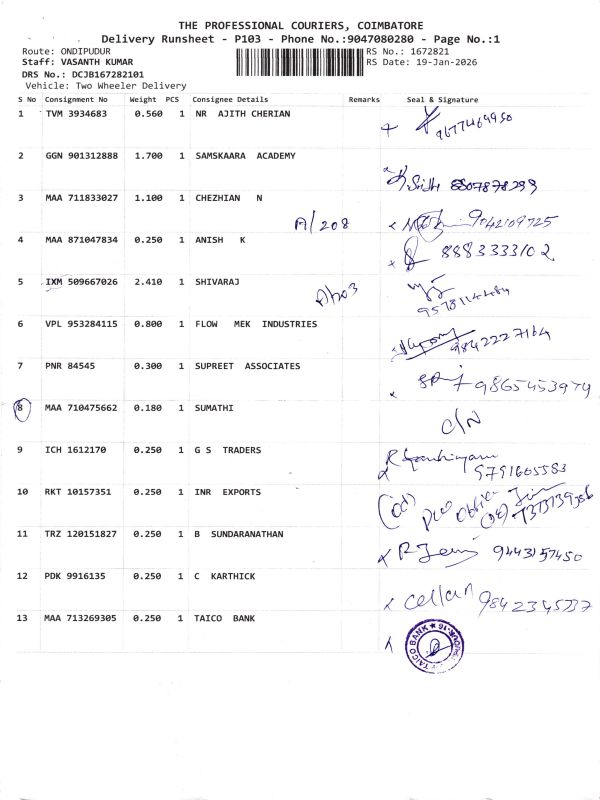 THE PROFESSIONAL COURIERS, COIMBATORE
Delivery Runsheet - P103 - Phone No.:9047080280 - Page No.:1
Route: ONDIPUDUR RS No.: 1672821
Staff: VASANTH KUMAR RS Date: 19-Jan-2026
DRS No.: DCJB167282101
Vehicle: Two Wheeler Delivery
S No Consignment No Weight PCS Consignee Details Remarks Seal & Signature
1 TVM 3934683 0.560 1 NR AJITH CHERIAN
9677469950
2 GGN 901312888 1.700 1 SAMSKAARA ACADEMY
8807878299
3 MAA 711833027 1.100 1 CHEZHIAN N
A/208 9042109725
4 MAA 871047834 0.250 1 ANISH K 8883333102
5 IXM 509667026 2.410 1 SHIVARAJ
6 VPL 953284115 0.800 1 FLOW MEK INDUSTRIES
9842227164
7 PNR 84545 0.300 1 SUPREET ASSOCIATES
9865453974
8 MAA 710475662 0.180 1 SUMATHI
C/N
9 ICH 1612170 0.250 1 G S TRADERS
9791605583
10 RKT 10157351 0.250 1 INR EXPORTS
11 TRZ 120151827 0.250 1 B SUNDARANATHAN
9443157450
12 PDK 9916135 0.250 1 C KARTHICK
9842345737
13 MAA 713269305 0.250 1 TAICO BANK
TAICO BANK